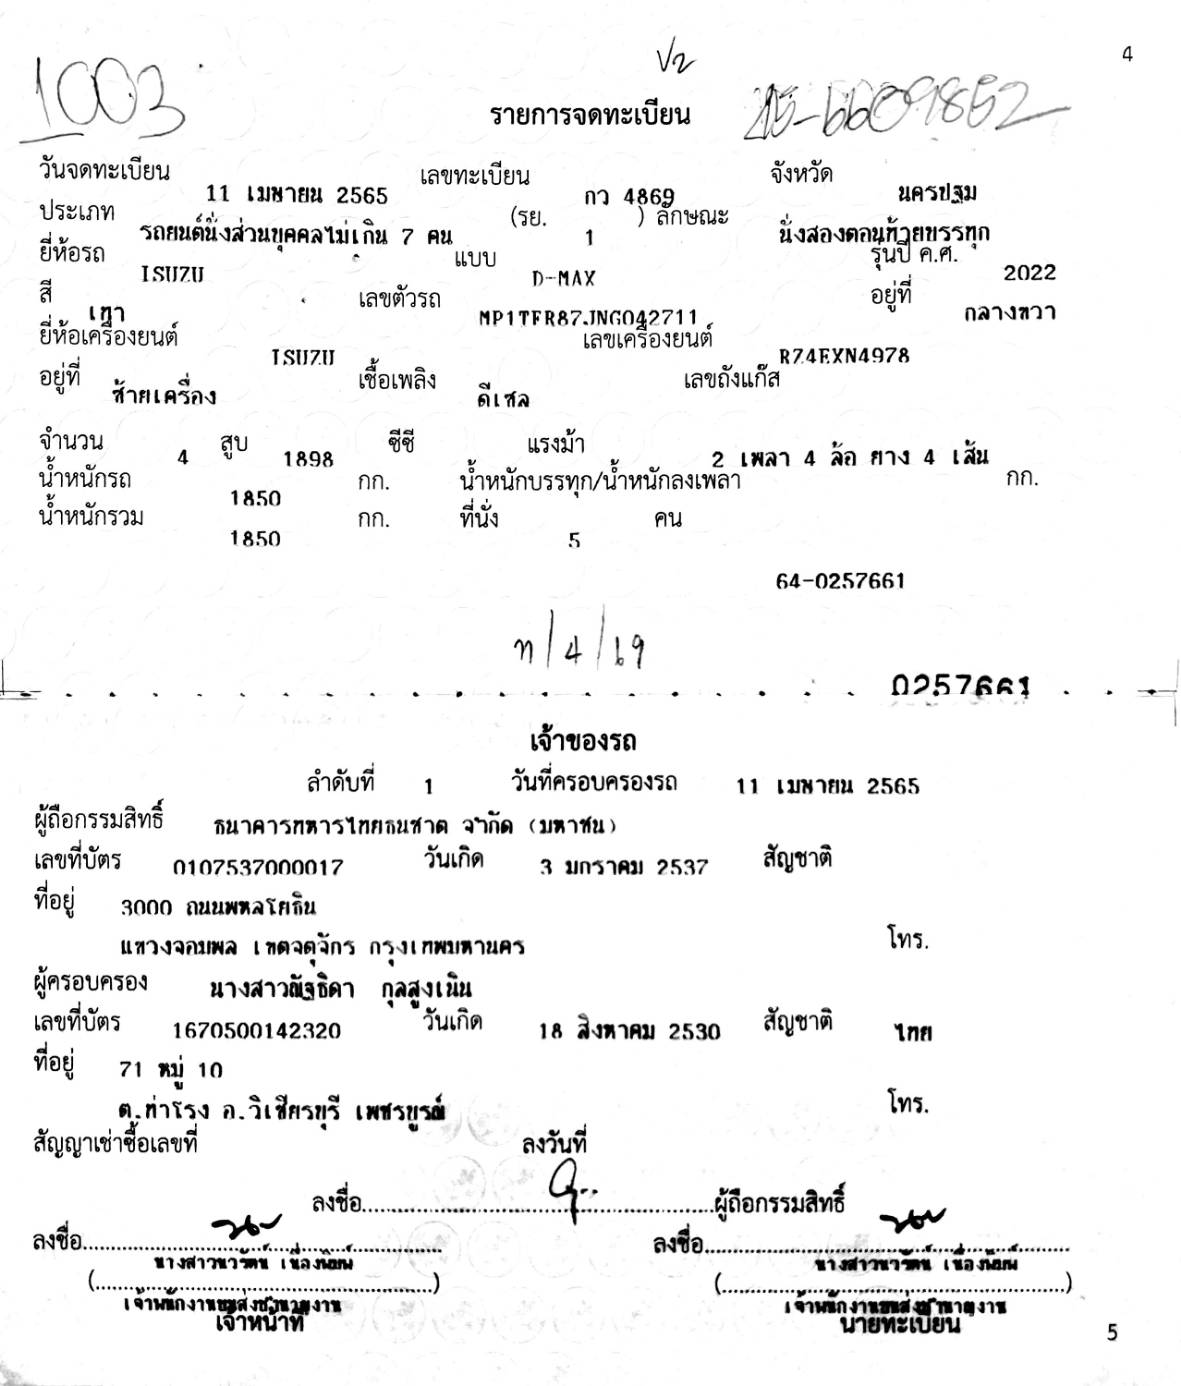 4
V2
1003
รายการจดทะเบียน
วันจดทะเบียน 11 เมษายน 2565 เลขทะเบียน กว 4869 จังหวัด นครปฐม
ประเภท รถยนต์นั่งส่วนบุคคลไม่เกิน 7 คน (รย. 1 ) ลักษณะ นั่งสองตอนท้ายบรรทุก
ยี่ห้อรถ ISUZU แบบ D-MAX รุ่นปี ค.ศ. 2022
สี เทา เลขตัวรถ MP1TFR87JNG042711 อยู่ที่ กลางขวา
ยี่ห้อเครื่องยนต์ ISUZU เลขเครื่องยนต์ RZ4EXN4978
อยู่ที่ ซ้ายเครื่อง เชื้อเพลิง ดีเซล เลขถังแก๊ส
จำนวน 4 สูบ 1898 ซีซี แรงม้า 2 เพลา 4 ล้อ ยาง 4 เส้น
น้ำหนักรถ 1850 กก. น้ำหนักบรรทุก/น้ำหนักลงเพลา กก.
น้ำหนักรวม 1850 กก. ที่นั่ง 5 คน
64-0257661
ท/4/69
0257661
เจ้าของรถ
ลำดับที่ 1 วันที่ครอบครองรถ 11 เมษายน 2565
ผู้ถือกรรมสิทธิ์ ธนาคารทหารไทยธนชาต จำกัด (มหาชน)
เลขที่บัตร 0107537000017 วันเกิด 3 มกราคม 2537 สัญชาติ
ที่อยู่ 3000 ถนนพหลโยธิน
แขวงจอมพล เขตจตุจักร กรุงเทพมหานคร โทร.
ผู้ครอบครอง นางสาวณัฐธิดา กุลสูงเนิน
เลขที่บัตร 1670500142320 วันเกิด 18 สิงหาคม 2530 สัญชาติ ไทย
ที่อยู่ 71 หมู่ 10
ต.ท่าโรง อ.วิเชียรบุรี เพชรบูรณ์ โทร.
สัญญาเช่าซื้อเลขที่ ลงวันที่
ลงชื่อ..............................ผู้ถือกรรมสิทธิ์
ลงชื่อ.............................. ลงชื่อ..............................
นางสาวนวรัตน์ เนื่องพิมพ์ นางสาวนวรัตน์ เนื่องพิมพ์
(..............................) (..............................)
เจ้าพนักงานขนส่งชำนาญงาน เจ้าพนักงานขนส่งชำนาญงาน
เจ้าหน้าที่ นายทะเบียน
5